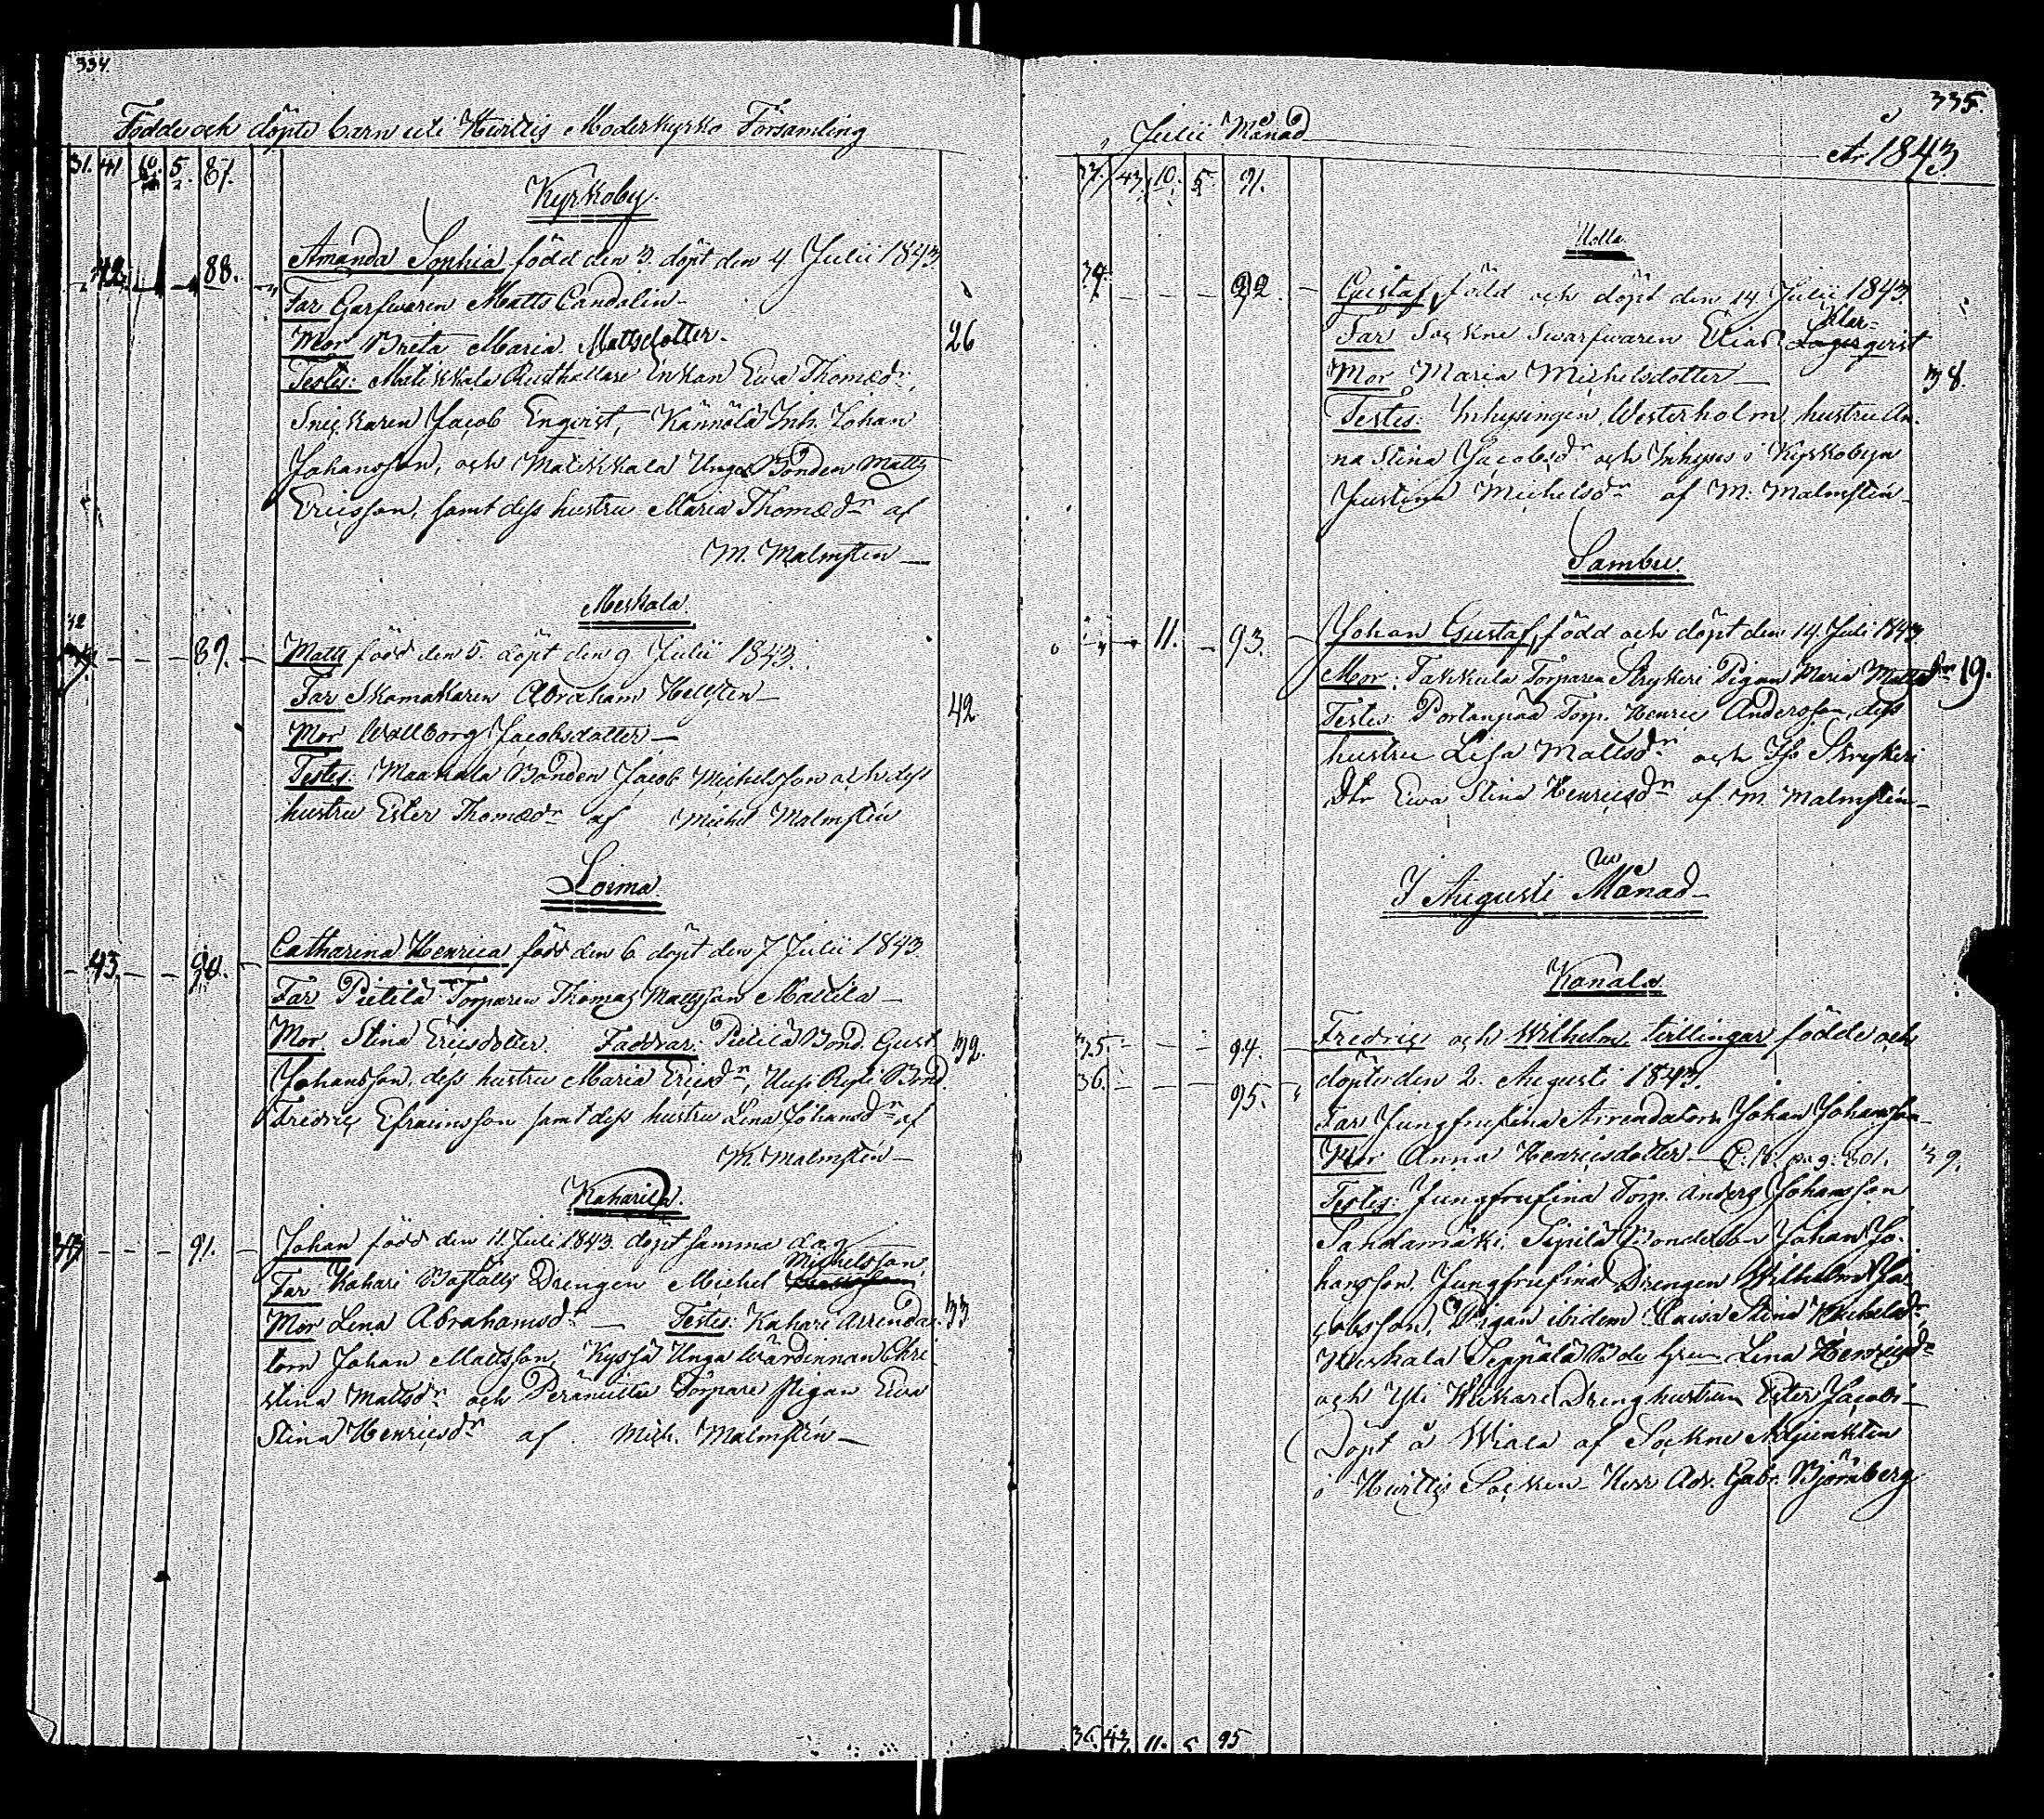 334.
Födde och döpte barn uti Huittis Moderkyrko Församling
31. 41 10. 5. 87.
Kyrkoby.
42. 88. Amanda Sophia född den 3. döpt den 4 Julii 1843
Far Garfwaren Matts Candolin
Mor Brita Maria Mattsdotter. 26
Testes: Matikkala Rusthållare Enkan Ewa Thomædr,
Snickaren Jacob Enqvist, Kännölä Inh. Johan
Johansson, och Matikkala Unga Bonden Matts
Ericsson, samt dess hustru Maria Thomædr af
M. Malmstén
Meskala.
32 89. Matts född den 5. döpt den 9 Julii 1843.
Far Skomakaren Abraham Hellstén
Mor Wallborg Jacobsdotter 42
Testes: Maahala Bonden Jacob Michelsson och dess
hustru Ester Thomædr af Michel Malmstén
Loima.
43. 90. Catharina Henrica född den 6. döpt den 7 Julii 1843
Far Pietilä Torparen Thomas Mattsson Mattila
Mor Stina Ericsdotter. Faddrar: Pietilä Bond. Gust. 32.
Johansson, dess hustru Maria Ericsdr, Uusi Bond.
Fredric Efraimsson samt dess hustru Lena Johansdr af
M. Malmstén
Kaharila.
33 91. Johan född den 11. Juli 1843. döpt samma dag
Michelsson
Far Kahari Boställs Drengen Michel
Mor Lena Abrahamsdr Testes: Kahari Arrenda- 33
torn Johan Mattsson, Unga Wärdinnan Chri
stina Mattsdr och Torpare pigan Ewa
Stina Henricsdr af Mich. Malmstén
335.
Julii Månad
År 1843
43. 10. 5 91.
Nolla.
34. 92. Gustaf, född och döpt den 14 Julii 1843.
Klar-
Far Sockne Swarfwaren Elias Lagerqvist
Mor Maria Michelsdotter 38.
Testes: Inhysingen Westerholm, hustru An-
na Stina Jacobsdr och Inhyses i Kyrkobyn
Justina Michelsdr af M. Malmstén
Sambu.
11. 93. Johan Gustaf, född och döpt den 14. Juli 1843
Mor: Takkula Torparen Strykeri Pigan Maria Mattsdr 19.
Testes: Portanpää Torp. Henric Andersson, dess
hustru Lisa Mattsdr och Iso Strykeri
Dtr Ewa Stina Henricsdr af M. Malmstén
I Augusti Månad
Kanala
35. 94. Fredric och Wilhelm tvillingar födde och
36. 95. döpte den 2. Augusti 1843.
Far Jungfrufina Arrendatorn Johan Johansson
Mor Anna Henricsdotter pag. 301. 39.
Testes: Jungfrufina Torp. Anders Johansson
Sandamäki, Sipilä Bondeson Johan Jo-
hansson, Jungfrufina Drengen Wilhelm Ja-
cobsson, Pigan ibidem Stina Michelsdr,
Seppälä Lena Henricsdr
och Yli Drenghustrun Ester Jacobs
Döpt å Wiala af Sockne Adjunkten
i Huittis Socken Herr Adr. Gabr. Björnberg
36. 43. 11. 5 95